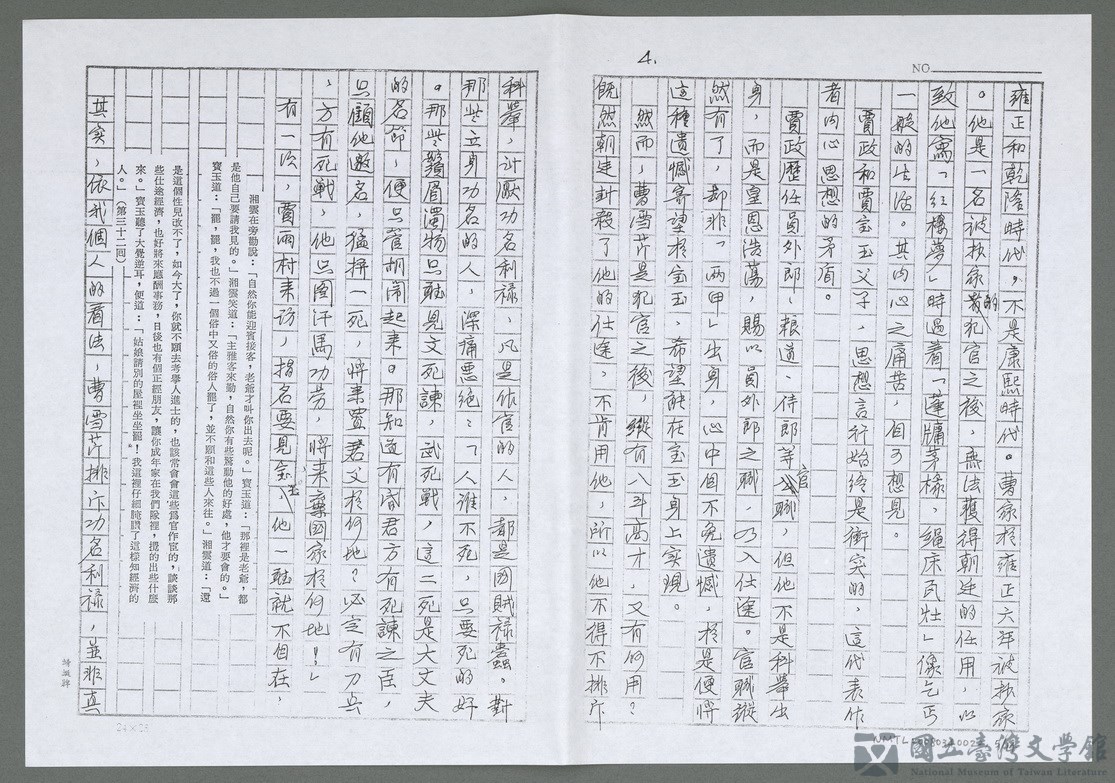 4.
NO
雍正和乾隆時代,不是康熙時代。曹家於雍正六年被抄家
。他是一名被抄家的犯官之後,無法獲得朝廷的任用,以
致他寫「紅樓夢」時過着「蓬牖茅椽,繩床瓦灶」像乞丐
一般的生活。其內心之痛苦,自可想見。
賈政和賈寶玉父子,思想言行始終是衝突的,這代表作
者內心思想的矛盾。
賈政歷任員外郎、粮道、侍郎等官職,但他不是科舉出
身,而是皇恩浩蕩,賜以員外郎之職,乃入仕途。官職縱
然有了,却非「兩甲」出身,心中自不免遺憾,於是便將
這種遺憾寄望於宝玉,希望能在宝玉身上实現。
然而,曹雪芹是犯官之後,縱有八斗高才,又有何用?
既然朝廷封殺了他的仕途,不肯用他,所以他不得不排斥
科舉,討厭功名利祿,凡是作官的人,都是国賊祿蠹。對
那些立身功名的人,深痛悪絕:「人誰不死,只要死的好
。那些鬚眉濁物只聴見文死諫,武死戰,這二死是大丈夫
的名節,便只管胡鬧起来。那知道有昏君方有死諫之臣,
只顧他邀名,猛拼一死,將来置君父於何地?必定有刀兵
,方有死戰,他只圖汗馬功劳,將来棄国家於何地!」
有一次,賈雨村来訪,指名要見宝玉,他一聴就不自在,
湘雲在旁勸說:「自然你能迎賓接客,老爺才叫你出去呢。」寶玉道:「那裡是老爺,都
是他自己要請我見的。」湘雲笑道:「主雅客來勤,自然你有些驚動他的好處,他才要會的。」
寶玉道:「罷,罷,我也不過一個俗中又俗的俗人罷了,並不願和這些人來往。」湘雲道:「還
是這個性兒改不了,如今大了,你就不願去考舉人進士的,也該常會會這些爲官作宦的,談談那
些仕途經濟,也好將來應酬事務,日後也有個正經朋友,讓你成年家在我們隊裡,攪的出些什麼
來。」寶玉聽了大覺逆耳,便道:「姑娘請別的屋裡坐坐罷!我這裡仔細腌臢了這樣知經濟的
人。」(第三十二回)。
其实,依我個人的看法,曹雪芹排斥功名利祿,並非真
24×25
國立臺灣文學館
National Museum of Taiwan Literature